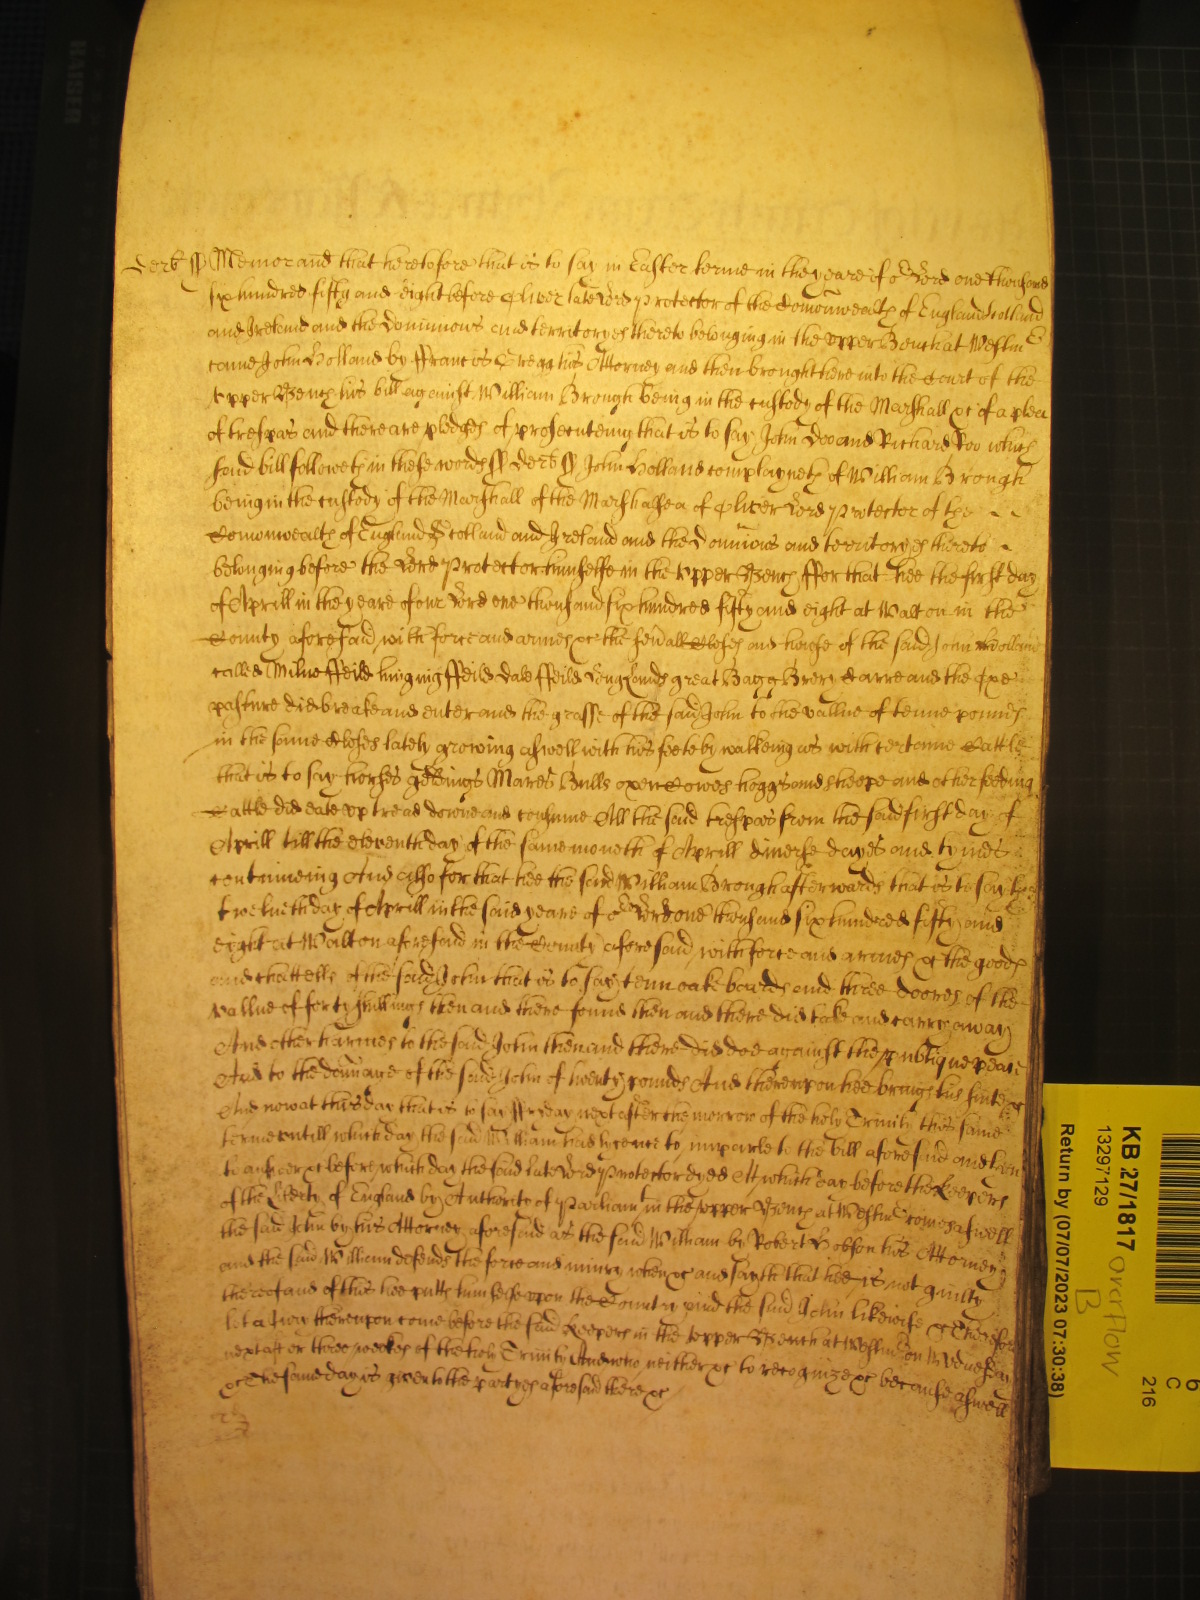 Derb ss Memorand that heretofore that is to say in Easter terme in the yeare of or Lord one thousand
six hundred fifty and eight before Oliver late Lord Protector of the Comonwealth of England Scotland
and Ireland and the Dominions and territoryes thereto belonging in the upper Bench at Westmr
came John Holland by Francis Gregg his Attorney and then brought here into the Court of the
upper Bench his bill against William Brough being in the custody of the Marshall &c of a plea
of trespas and there are pledges of prosecuteing that is to say John Doo and Richard Roo which
said bill followeth in these words ss Derb ss John Holland complayneth of William Brough
being in the custody of the Marshall of the Marshalsea of Oliver Lord Protector of the
Comonwealth of England Scotland and Ireland and the Dominions and territoryes thereto
belonging before the Lord Protector himselfe in the upper Bench ffor that hee the first day
of Aprill in the yeare of our Lord one thousand six hundred fifty and eight at Walton in the
County aforesaid with force and armes &c the sevall Closes and house of the said John Holland
called Milne ffeild hinging ffeild dale ffeild Longlands great Bagg Brery Carre and the Oxe
pasture did breake and enter and the grasse of the said John to the vallue of tenne pounds
in the same Closes lately growing aswell with his feete by walkeing as with certaine Cattle
that is to say horses geldings Mares Bulls oxen Cowes hoggs and sheepe and other feeding
Cattle did eate up tread downe and consume All the said trespas from the said first day of
Aprill till the eleventh day of the same moneth of Aprill diverse dayes and tymes
continueing And also for that hee the said William Brough afterwards that is to say the
twelueth day of Aprill in the said yeare of or Lord one thousand six hundred fifty and
eight at Walton aforesaid in the County aforesaid with force and armes &c the goods
and chattells of the said John that is to say tenn oake boards and three doores of the
vallue of forty shillings then and there found then and there did take and carry away
And other harmes to the said John then and there did doe against the publique peace
And to the damage of the said John of twenty pounds And thereupon hee brings his suite &c
And now at this day that is to say ffryday next after the morrow of the holy Trinity this same
terme untill which day the said William had lycence to imparle to the bill aforesaid and then
to answer &c before which day the said late Lord Protector dyed At which day before the Keepers
of the liberty of England by Authoritie of Parliam in the upper Bench at Westmr comes aswell
the said John by his Attorney aforesaid as the said William by Robert Hobson his Attorney
and the said William defends the force and iniury when &c and sayth that hee is not guilty
thereof and of this hee putts himselfe upon the Country And the said John likewise &c Therefore
let a Jury thereupon come before the said Keepers in the upper Bench at Westmr on Wednesday
next after three weekes of the holy Trinity And who neither &c to recognize &c because aswell
&c The same day is given to the partyes aforesaid there &c
KAISER
KB 27/1817
13297129
Return by (07/07/2023 07:30:38)
overflow
B
6
C
216